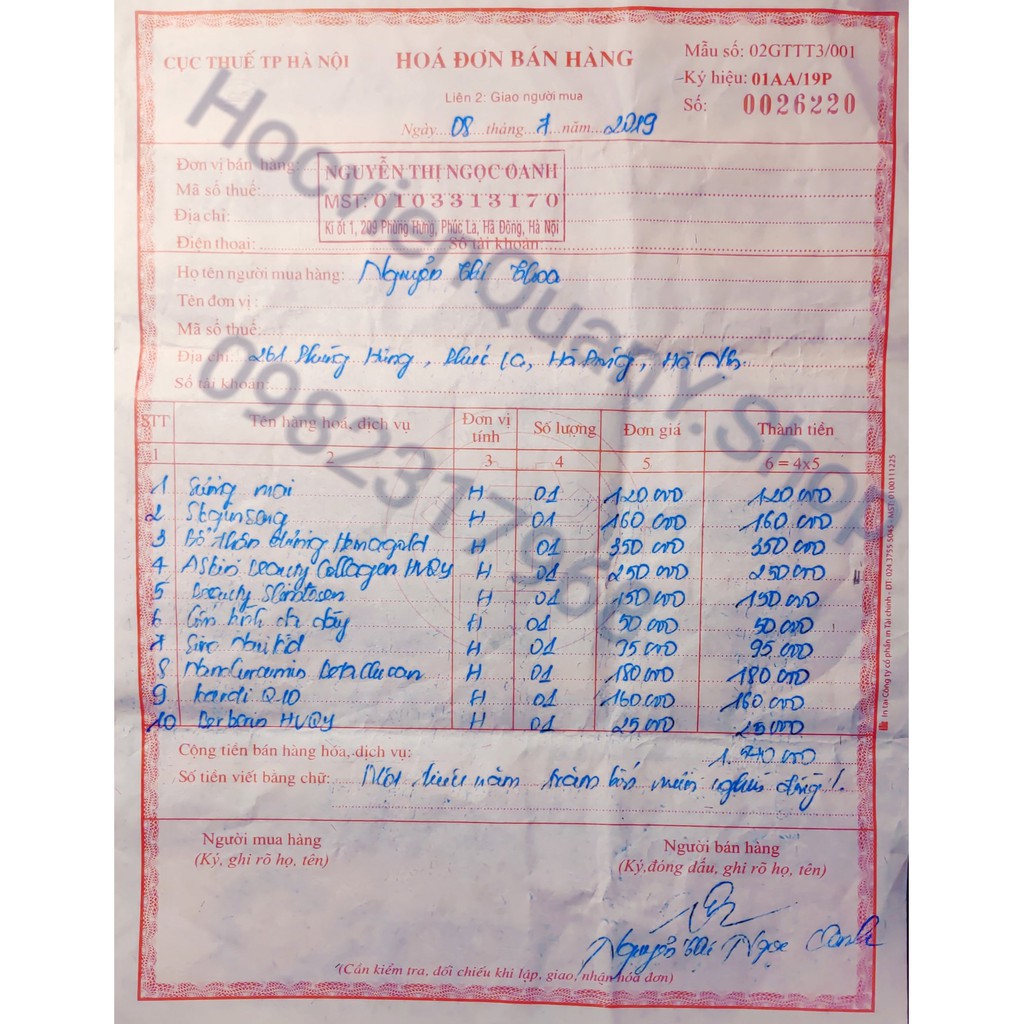 CỤC THUẾ TP HÀ NỘI
HOÁ ĐƠN BÁN HÀNG
Mẫu số: 02GTTT3/001
Ký hiệu: 01AA/19P
Số: 0026220
Liên 2: Giao người mua
Ngày 08 tháng 7 năm 2019
Đơn vị bán hàng: NGUYỄN THỊ NGỌC OANH
Mã số thuế: MST: 0103313170
Địa chỉ: Ki ốt 1, 209 Phùng Hưng, Phúc La, Hà Đông, Hà Nội
Điện thoại: Số tài khoản:
Họ tên người mua hàng: Nguyễn Thị Thoa
Tên đơn vị:
Mã số thuế:
Địa chỉ: 261 Phùng Hưng, Phúc La, Hà Đông, Hà Nội
Số tài khoản:
STT Tên hàng hoá, dịch vụ Đơn vị tính Số lượng Đơn giá Thành tiền
1 2 3 4 5 6 = 4x5
1 H 01 120.000 120.000
2 H 01 160.000 160.000
3 Hemogold H 01 350.000 350.000
4 Beauty Collagen HVQY H 01 250.000 250.000
5 Beauty H 01 150.000 150.000
6 dạ dày H 01 50.000 50.000
7 Siro H 01 95.000 95.000
8 NanoCurcumin BetaGlucan H 01 180.000 180.000
9 Kardi Q-10 H 01 160.000 160.000
10 Berberin HVQY H 01 25.000 25.000
Cộng tiền bán hàng hóa, dịch vụ: 1.540.000
Số tiền viết bằng chữ: Một triệu năm trăm bốn mươi nghìn đồng!
Người mua hàng
(Ký, ghi rõ họ, tên)
Người bán hàng
(Ký, đóng dấu, ghi rõ họ, tên)
Nguyễn Thị Ngọc Oanh
(Cần kiểm tra, đối chiếu khi lập, giao, nhận hóa đơn)
In tại Công ty cổ phần in Tài chính - ĐT: 024.3755 5045 - MST: 0100111225
HocvienQuanY.Shop